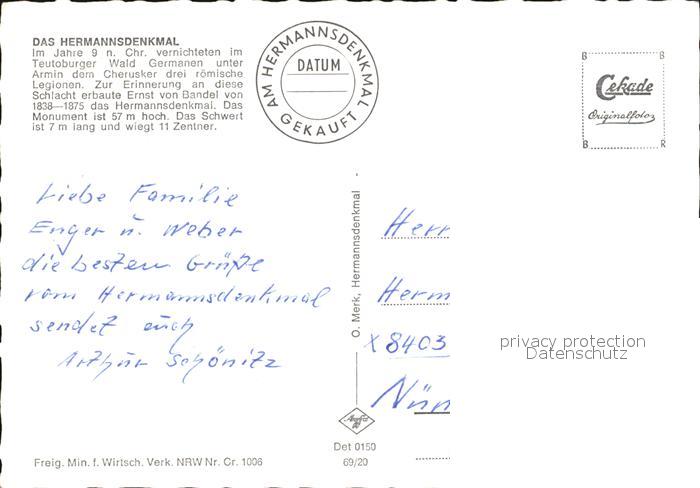 DAS HERMANNSDENKMAL
Im Jahre 9 n. Chr. vernichteten im
Teutoburger Wald Germanen unter
Armin dem Cherusker drei römische
Legionen. Zur Erinnerung an diese
Schlacht erbaute Ernst von Bandel von
1838—1875 das Hermannsdenkmal. Das
Monument ist 57 m hoch. Das Schwert
ist 7 m lang und wiegt 11 Zentner.
AM HERMANNSDENKMAL
DATUM
GEKAUFT
B B
Cekade
Originalfoto
B R
Liebe Familie
Enger u. Weber
die besten Grüße
vom Hermannsdenkmal
sendet euch
Arthur Schönitz
O. Merk, Hermannsdenkmal
Herr
Herm
X 8403
Nün
privacy protection
Datenschutz
Agfa
Det 0150
69/20
Freig. Min. f. Wirtsch. Verk. NRW Nr. Cr. 1006